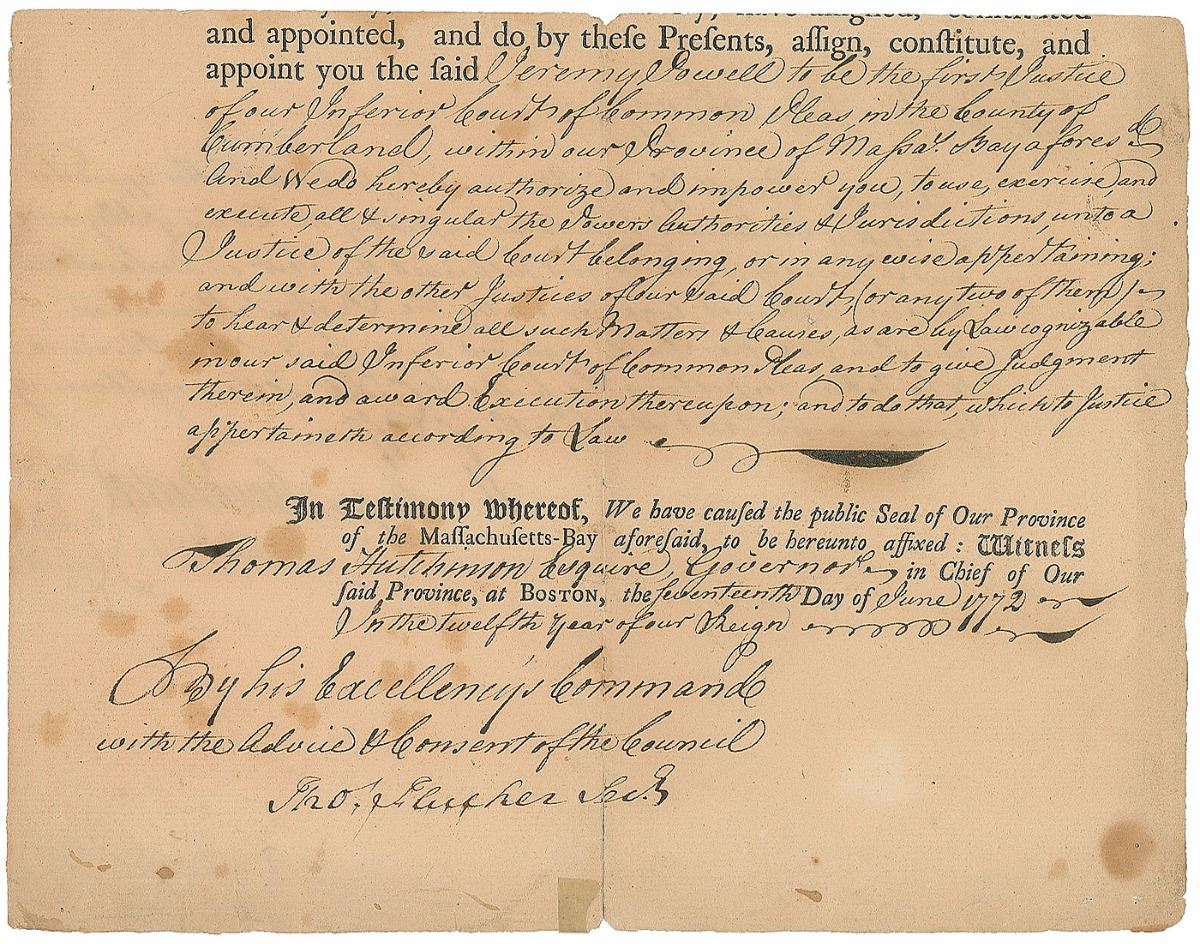 have assigned, constituted
and appointed, and do by theſe Preſents, aſſign, conſtitute, and
appoint you the ſaid Jeremy Powell to be the first Justice
of our Inferior Court of Common Pleas in the County of
Cumberland, within our Province of Massaᵗ. Bay aforesᵈ
And We do hereby authorize and impower you, to use, exercise and
execute, all & singular the Powers Authorities & Jurisdictions, unto a
Justice of the said Court belonging, or in any wise appertaining;
and with the other Justices of our said Court, (or any two of them)
to hear & determine all such Matters & Causes, as are by Law cognizable
in our said Inferior Court of Common Pleas, and to give Judgment
therein, and award Execution thereupon; and to do that, which to Justice
appertaineth according to Law
In Teſtimony whereof, We have cauſed the public Seal of Our Province
of the Maſſachuſetts-Bay aforeſaid, to be hereunto affixed: Witneſs
Thomas Hutchinson Esquire, Governor in Chief of Our
ſaid Province, at BOSTON, the seventeenth Day of June 1772
In the twelfth Year of our Reign
By his Excellency's Command
with the Advice & Consent of the Council
Thoˢ. Flucker Secʸ